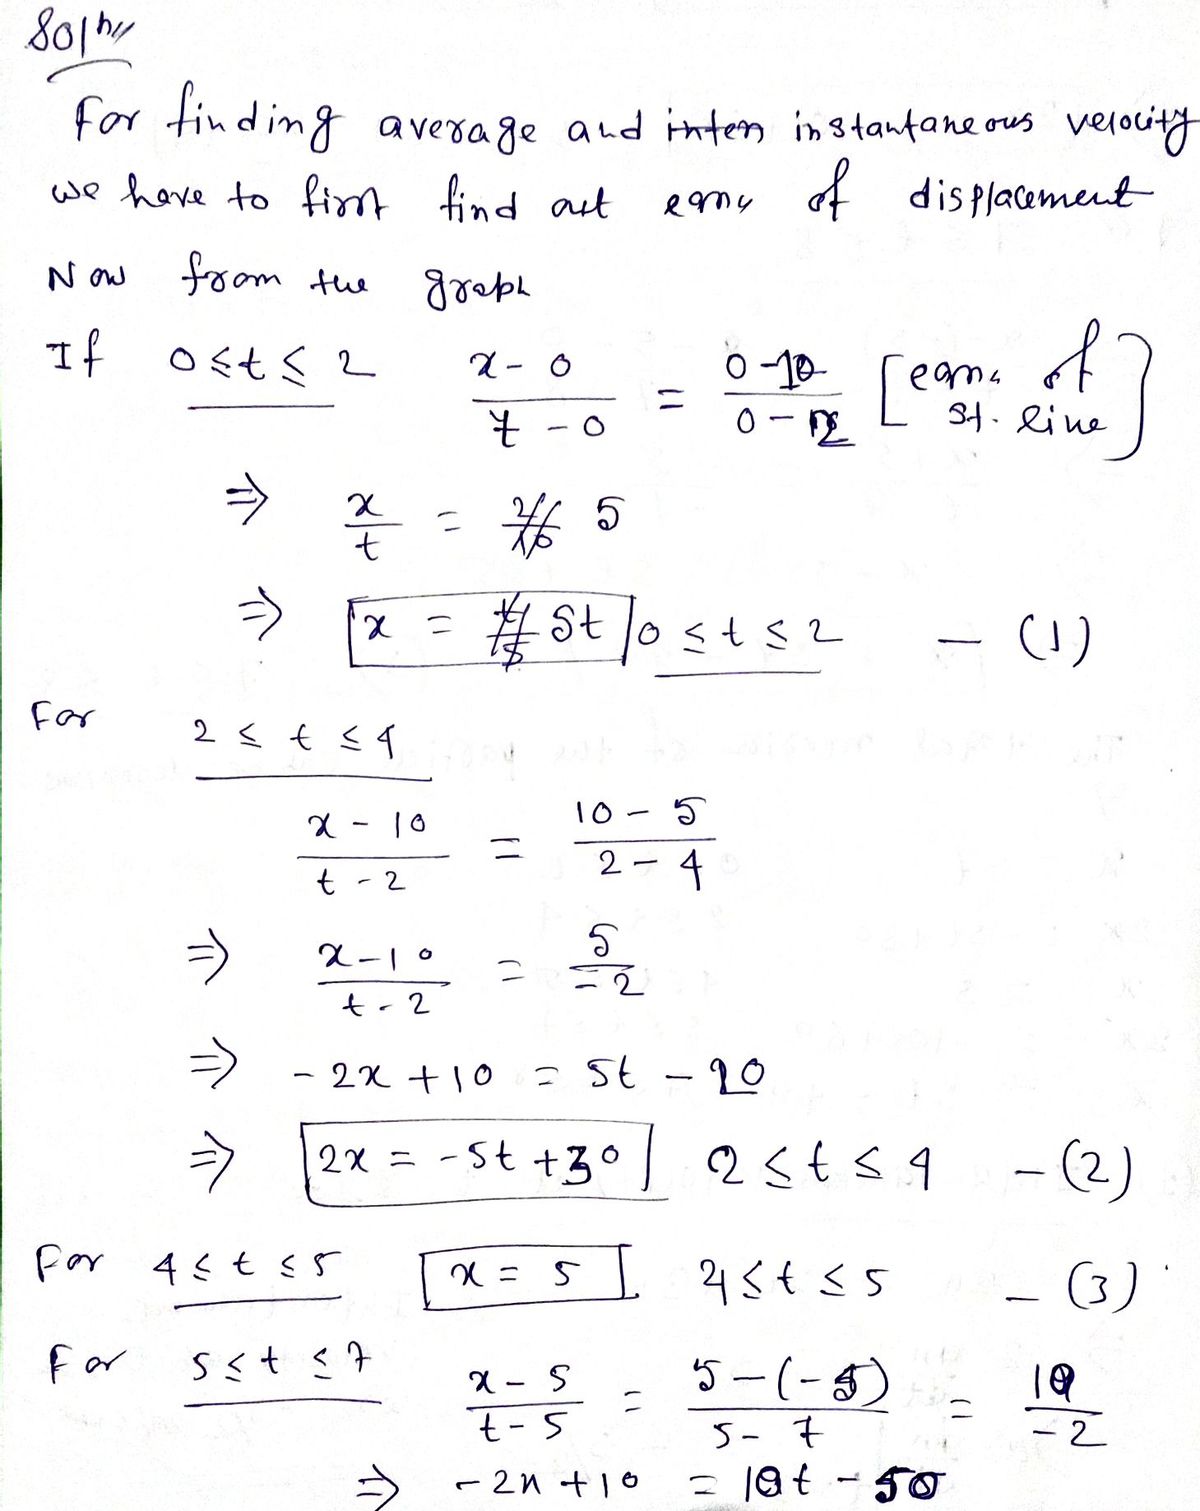 Solⁿ//
For finding average and instantaneous velocity
we have to first find out eqn, of displacement
Now from the graph
If 0 ≤ t ≤ 2 (x - 0)/(t - 0) = (0 - 10)/(0 - 2) [eqn, of st. line]
⇒ x/t = 5
⇒ x = 5t 0 ≤ t ≤ 2 — (1)
For 2 ≤ t ≤ 4
(x - 10)/(t - 2) = (10 - 5)/(2 - 4)
⇒ (x - 10)/(t - 2) = 5/-2
⇒ - 2x + 10 = 5t - 20
⇒ 2x = -5t + 30 2 ≤ t ≤ 4 — (2)
For 4 ≤ t ≤ 5 x = 5 4 ≤ t ≤ 5 — (3)
For 5 ≤ t ≤ 7 (x - 5)/(t - 5) = (5 - (-5))/(5 - 7) = 10/-2
⇒ -2x + 10 = 10t - 50